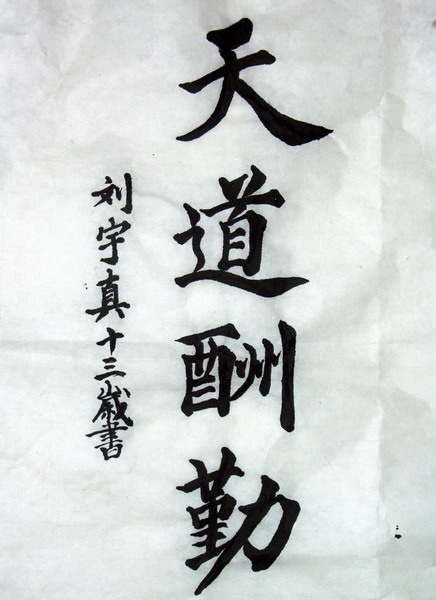 天道酬勤
刘宇真十三歲書